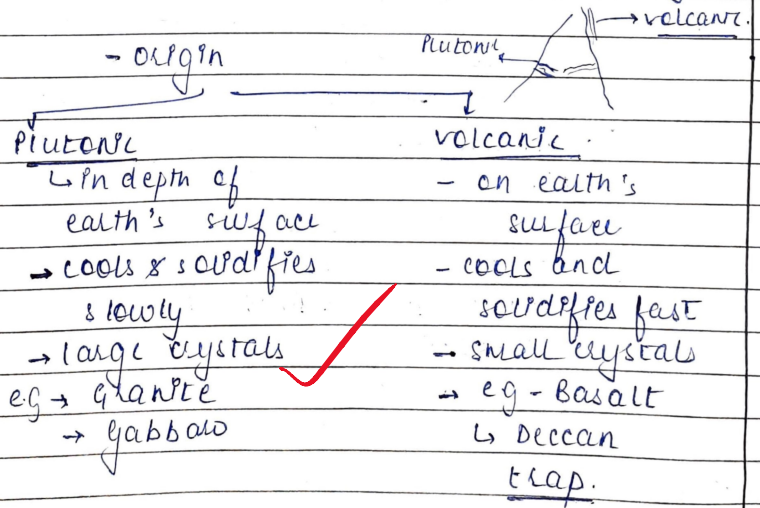 → volcanic.
Plutonic
- origin
Plutonic
↳ in depth of
earth's surface
→ cools & solidifies
slowly
→ large crystals
e.g → Granite
→ Gabbaro
volcanic.
- on earth's
surface
- cools and
solidifies fast
→ small crystals
→ eg - Basalt
↳ Deccan
trap.